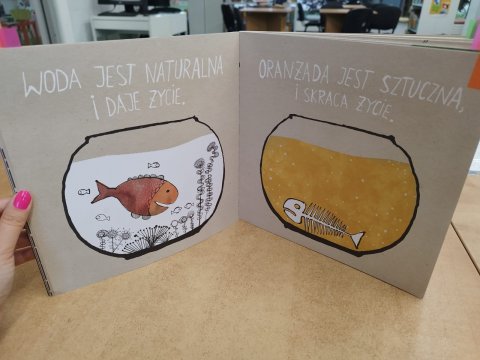 WODA JEST NATURALNA
I DAJE ŻYCIE.
ORANŻADA JEST SZTUCZNA,
I SKRACA ŻYCIE.